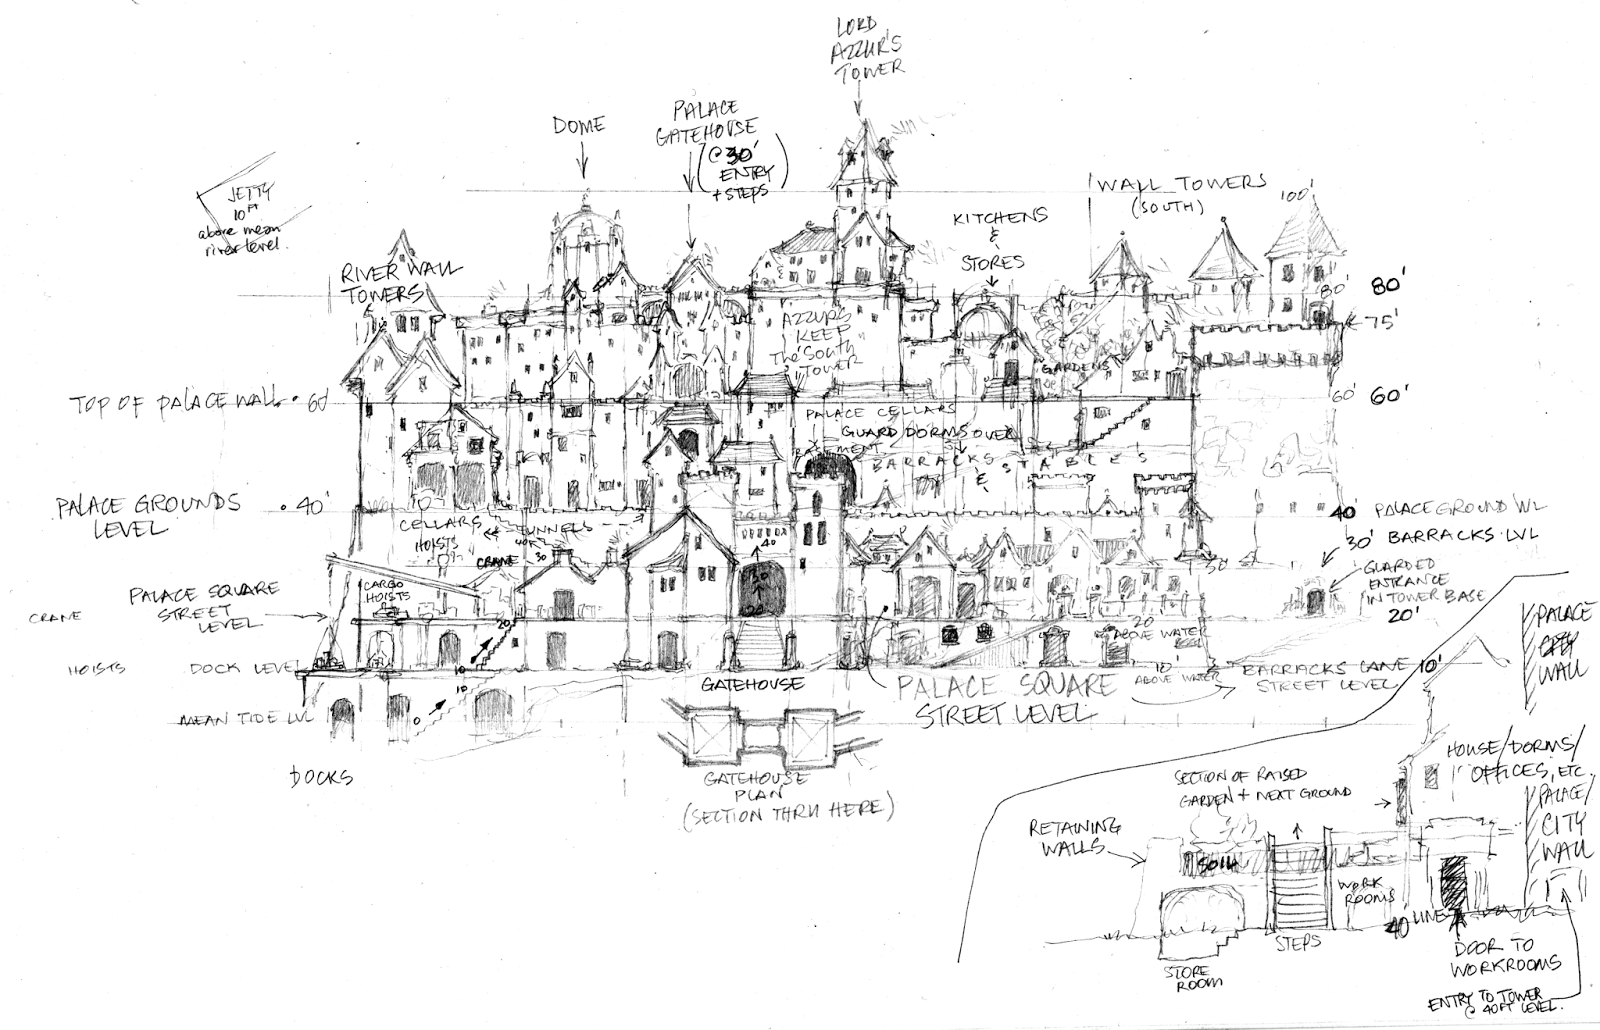 LORD
AZZUR'S
TOWER
DOME
PALACE
GATEHOUSE
(@30'
ENTRY
+ STEPS)
JETTY
10FT
above mean
river level.
RIVER WALL
TOWERS
KITCHENS
&
STORES
WALL TOWERS
(SOUTH)
100'
80' 80'
75'
AZZUR'S
KEEP
The South
TOWER
GARDENS
TOP OF PALACE WALL • 60'
60' 60'
PALACE CELLARS
GUARD DORMS OVER
BASEMENT
BARRACKS
&
STABLES
PALACE GROUNDS • 40'
LEVEL
CELLARS
TUNNELS
HOISTS
40
30
CRANE
40' PALACE GROUND LVL
30' BARRACKS LVL
30'
GUARDED
ENTRANCE
IN TOWER BASE
20'
CARGO
HOISTS
PALACE SQUARE
STREET
LEVEL
CRANE
20
40
30
20
20'
ABOVE WATER
HOISTS
DOCK LEVEL
10
10'
ABOVE WATER
BARRACKS LANE 10'
STREET LEVEL
GATEHOUSE
PALACE SQUARE
STREET LEVEL
10
0
MEAN TIDE LVL
DOCKS
GATEHOUSE
PLAN
(SECTION THRU HERE)
PALACE
CITY
WALL
HOUSE/DORMS/
OFFICES, ETC.
PALACE/
CITY
WALL
SECTION OF RAISED
GARDEN + NEXT GROUND
RETAINING
WALLS
SOIL
WORK
ROOMS
40' LINE
STEPS
STORE
ROOM
DOOR TO
WORKROOMS
ENTRY TO TOWER
@ 40FT LEVEL.